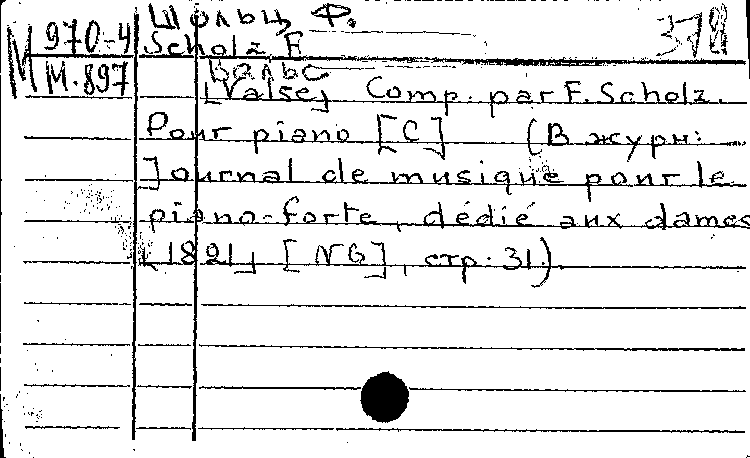 Шольц, Ф.
M 970-4 Scholz, F. 378
M-897 Вальс
[Valse] Comp. par F. Scholz.
Pour piano [C] (В журн:
Journal de musique pour le
piano-forte, dédié aux dames
[1821] [N6], стр. 31).